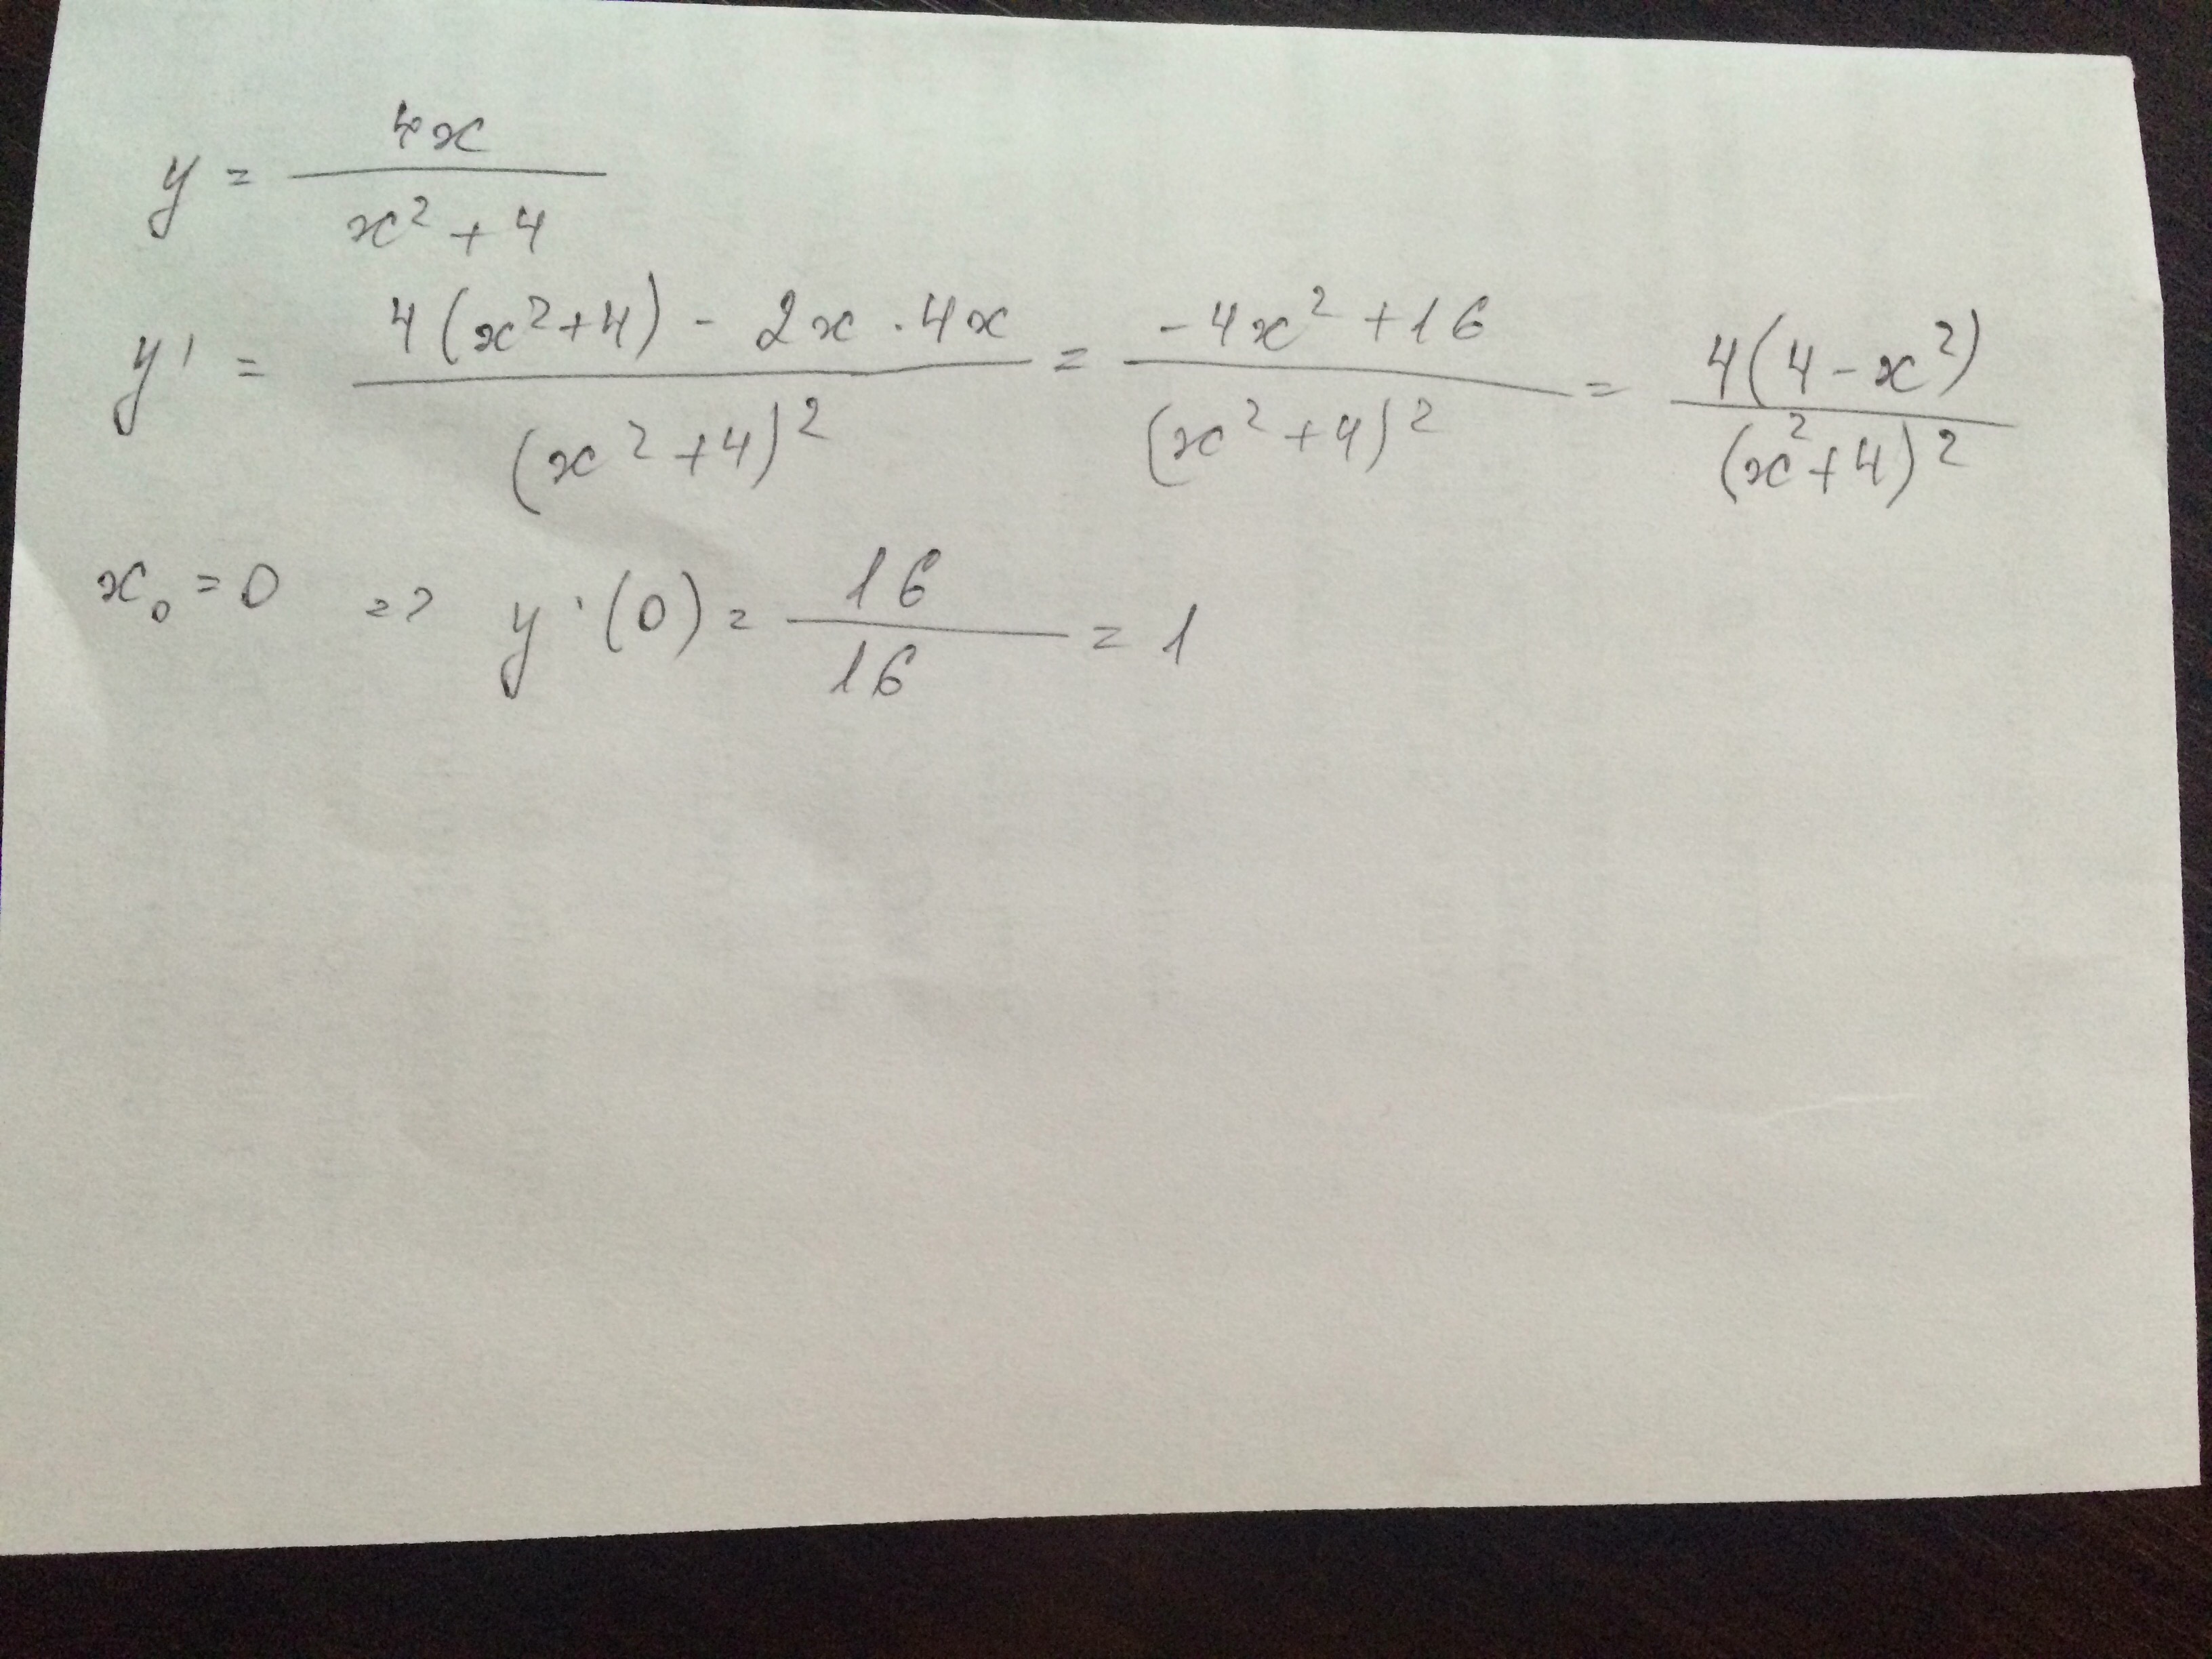 y = 4x / (x² + 4)
y' = (4(x²+4) - 2x · 4x) / (x² + 4)² = (-4x² + 16) / (x² + 4)² = 4(4 - x²) / (x² + 4)²
x₀ = 0 => y'(0) = 16 / 16 = 1